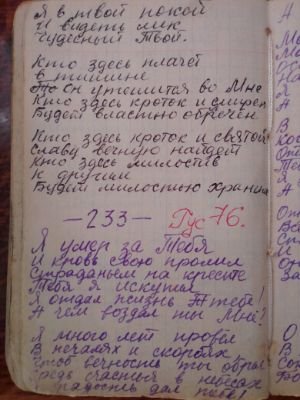 Я в твой покой
И видеть лик
Чудесный Твой.
Кто здесь плачет
в тишине
То он утешится во Мне
Кто здесь кроток и смирен
Будет властью обречен
Кто здесь кроток и святой
Славу вечную найдет
Кто здесь милостив
к другим
Будет милостью храним
—233— Гус 76.
Я умер за Тебя
И кровь Свою пролил
Страданьем на кресте
Тебя я искупил
Я отдал жизнь Я тебе!
А чем воздал ты Мне?
Я много лет провел
В печалях и скорбях
Чтоб вечность ты обрел
Средь счастья в небесах
радость дал тебе!